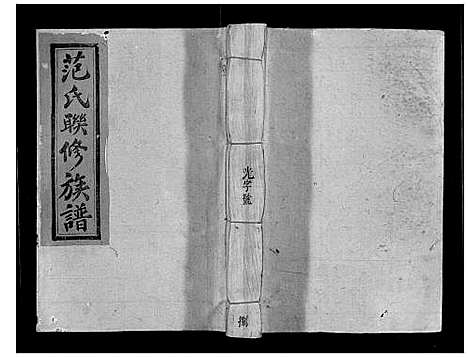 范氏聯修族譜
光字號
捌